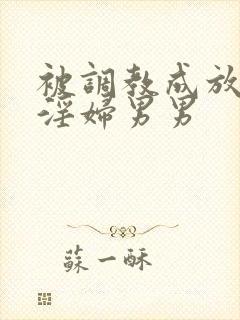 被調教成放
淫婦男男
蘇一酥